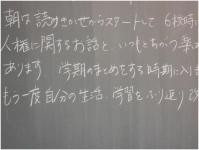 朝は読みきかせからスタートして 6校時に
人権に関するお話と、いつもとちがう楽
あります。学期のまとめをする時期に入り
もう一度自分の生活、学習をふり返り 改